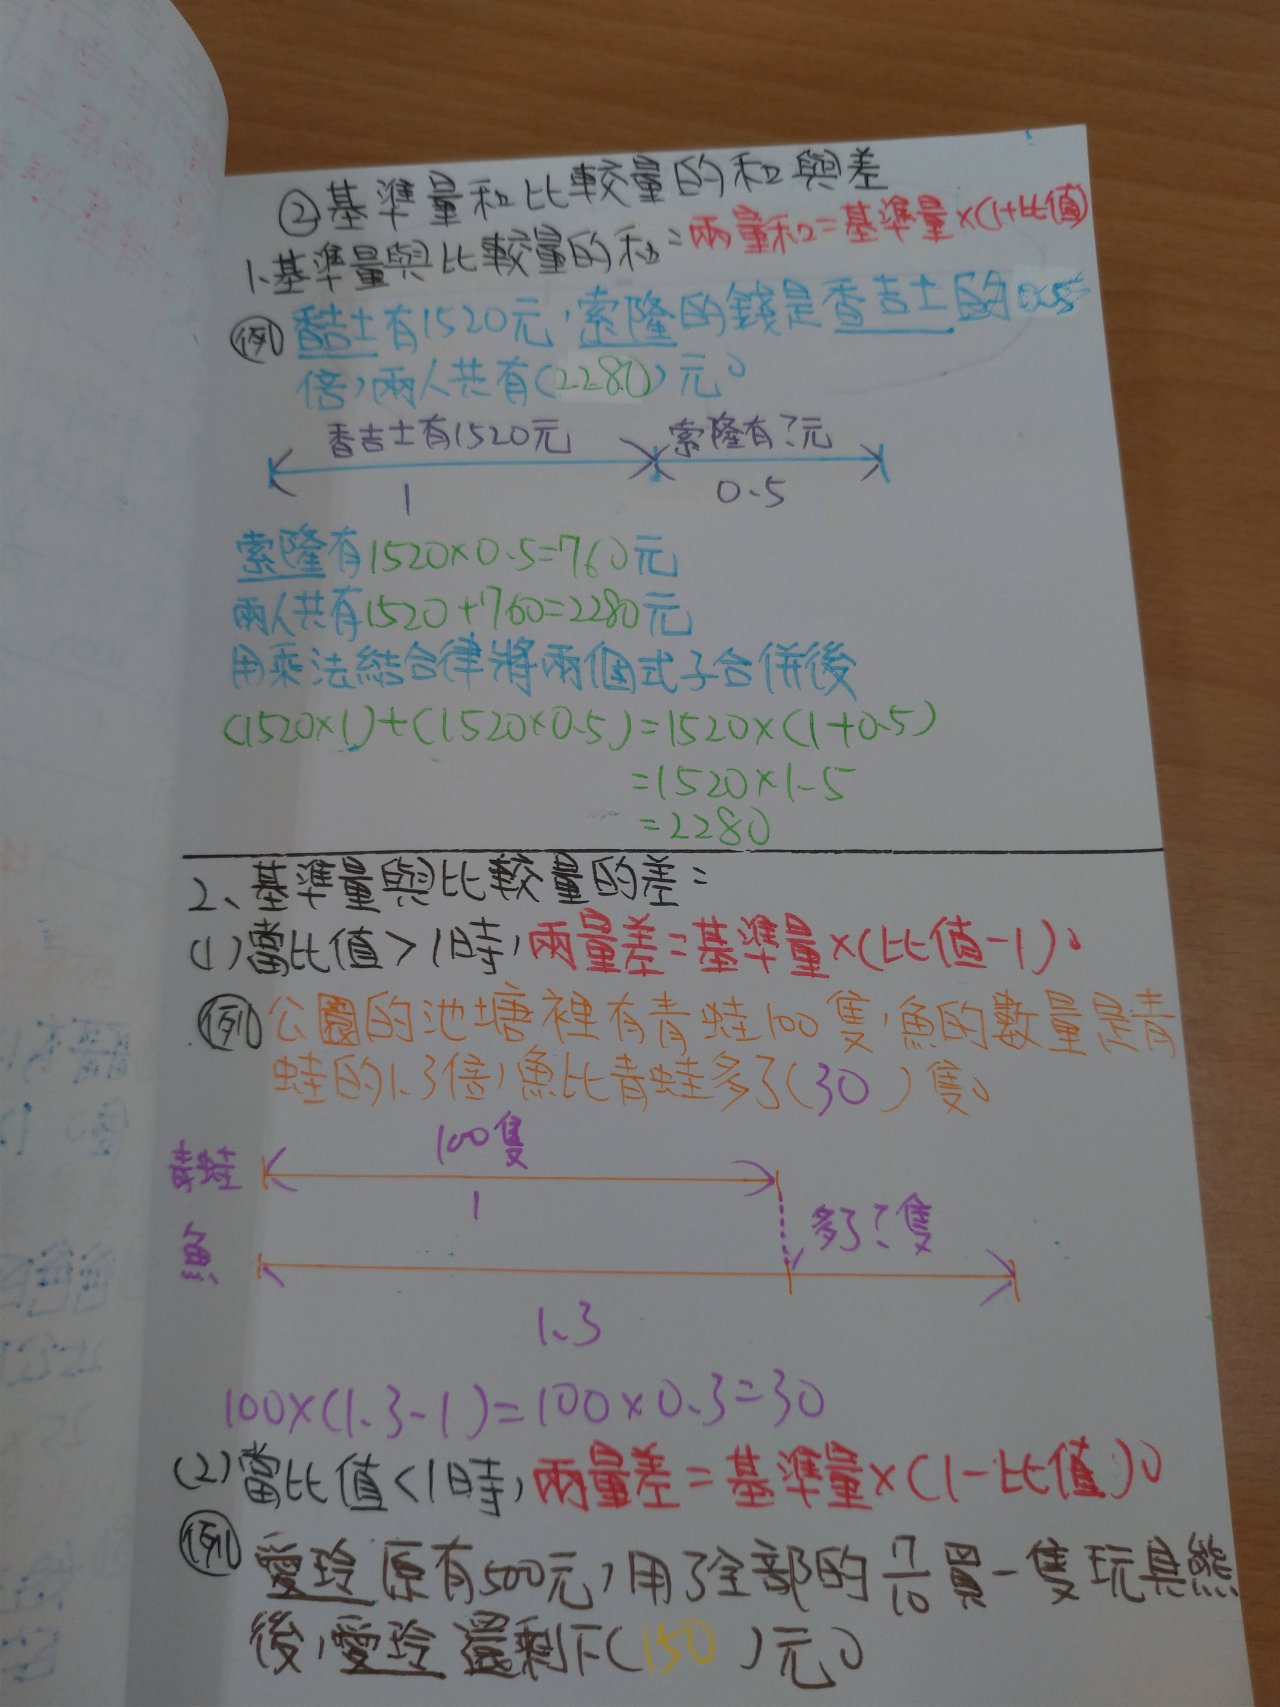 ②基準量和比較量的和與差
1、基準量與比較量的和：兩量和=基準量×(1+比值)
例 香吉士有1520元，索隆的錢是香吉士的0.5
倍，兩人共有(2280)元。
香吉士有1520元 索隆有?元
1 0.5
索隆有1520×0.5=760元
兩人共有1520+760=2280元
用乘法結合律將兩個式子合併後
(1520×1)+(1520×0.5)=1520×(1+0.5)
=1520×1.5
=2280
2、基準量與比較量的差：
(1)當比值>1時，兩量差=基準量×(比值-1)。
例 公園的池塘裡有青蛙100隻，魚的數量是青
蛙的1.3倍，魚比青蛙多了(30)隻。
100隻
青蛙
1
多了?隻
魚
1.3
100×(1.3-1)=100×0.3=30
(2)當比值<1時，兩量差=基準量×(1-比值)。
例 愛玲原有500元，用了全部的7/10買一隻玩具熊
後，愛玲還剩下(150)元。